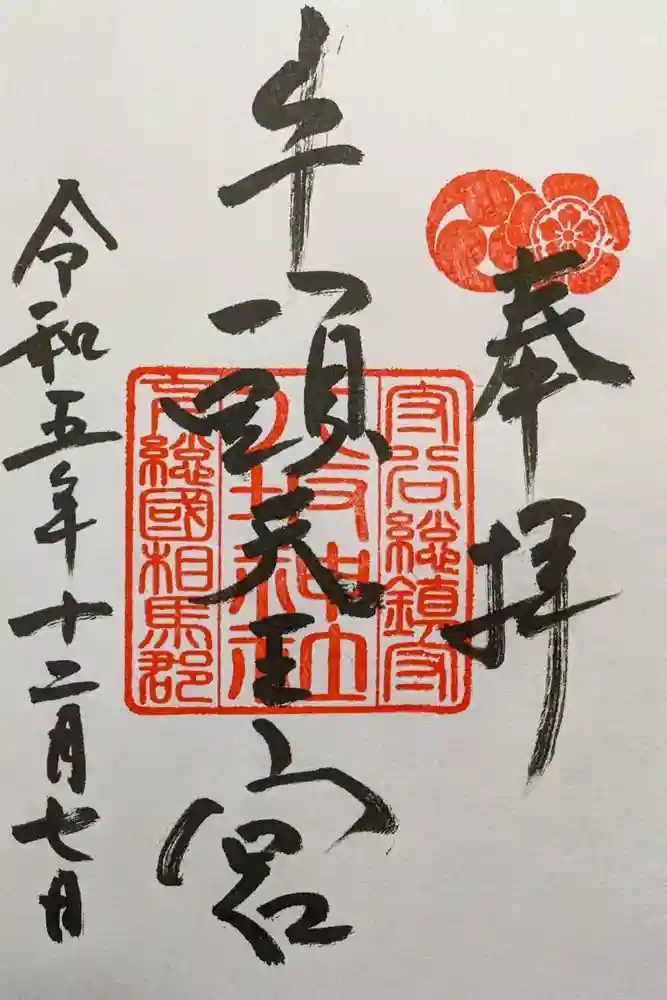 奉拝
守谷総鎮守
八坂神社
下総國相馬郡
牛頭天王宮
令和五年十二月七日